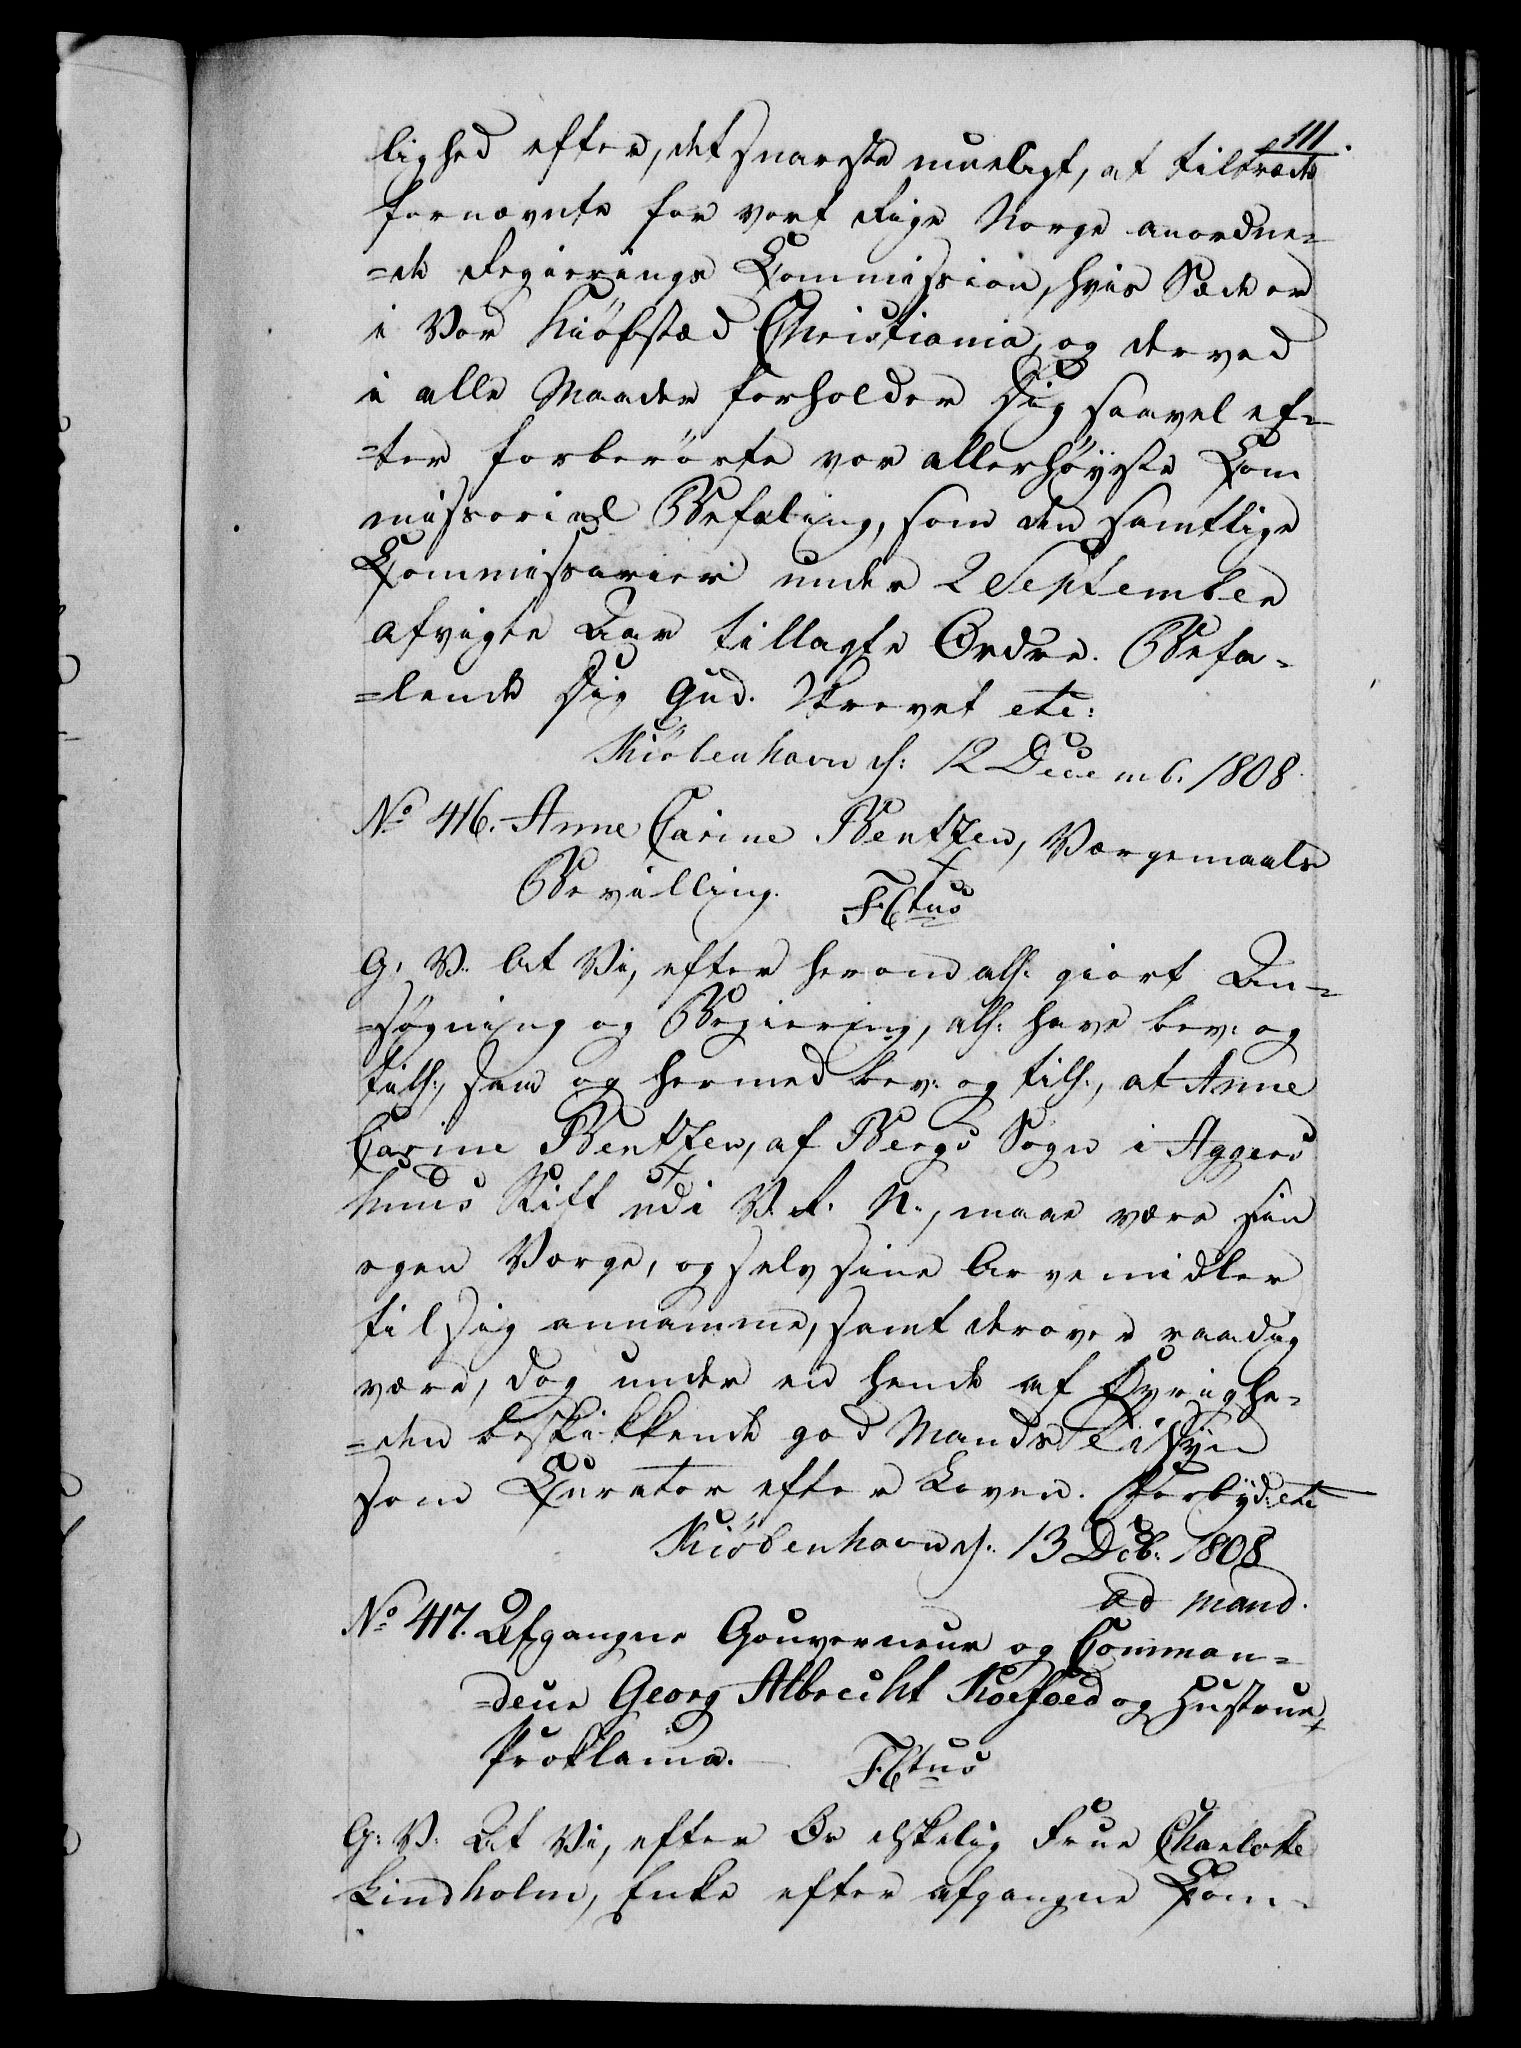 111.
lighed efter, det snareste mueligt, at tiltræde
fornævnte for vort Rige Norge anordne-
=de Regierings Commission, hvis Sæde er
i Vor Kiøbstæd Christiania, og derved
i alle Maader forholder Sig saavel ef-
=ter forberörte vor allerhöyeste Com
missorial Befaling, som den samtlige
Commissarier under 2 September
afvigte Aar tillagte Ordre. Befa-
=lende Sig Gud. Skrevet etc:
Kiöbenhavn d: 12 Decemb. 1808.
No 416. Anne Carine Bentzen, Værgemaals
Bevilling. F. Ctus
G: V: At Vi, efter herom alh: giort An-
=søgning og Begiering, alh: have bev: og
tilh:, som og hermed bev: og tilh:, at Anne
Carine Bentzen, af Bergs Sogn i Aggers
huus Stift udi V. R. N., maae være sin
egen Værge, og selv sine Arvemidler
til sig annamme, samt derover raadig
være, dog under en hende af Øvrighe-
=den beskikkende god Mands Tilsÿn
som Curator efter Loven. Forbÿd: etc
Kiöbenhavn d: 13 Dcb: 1808
ad mand.
No 417. Afgangne Gouverneur og Comman-
=deur Georg Albrecht Koefoed og Hustrues
Proklama. F. Ctus
G: V: At Vi, efter Os elskelig Frue Charlotte
Lindholm, Enke efter afgangne Com-